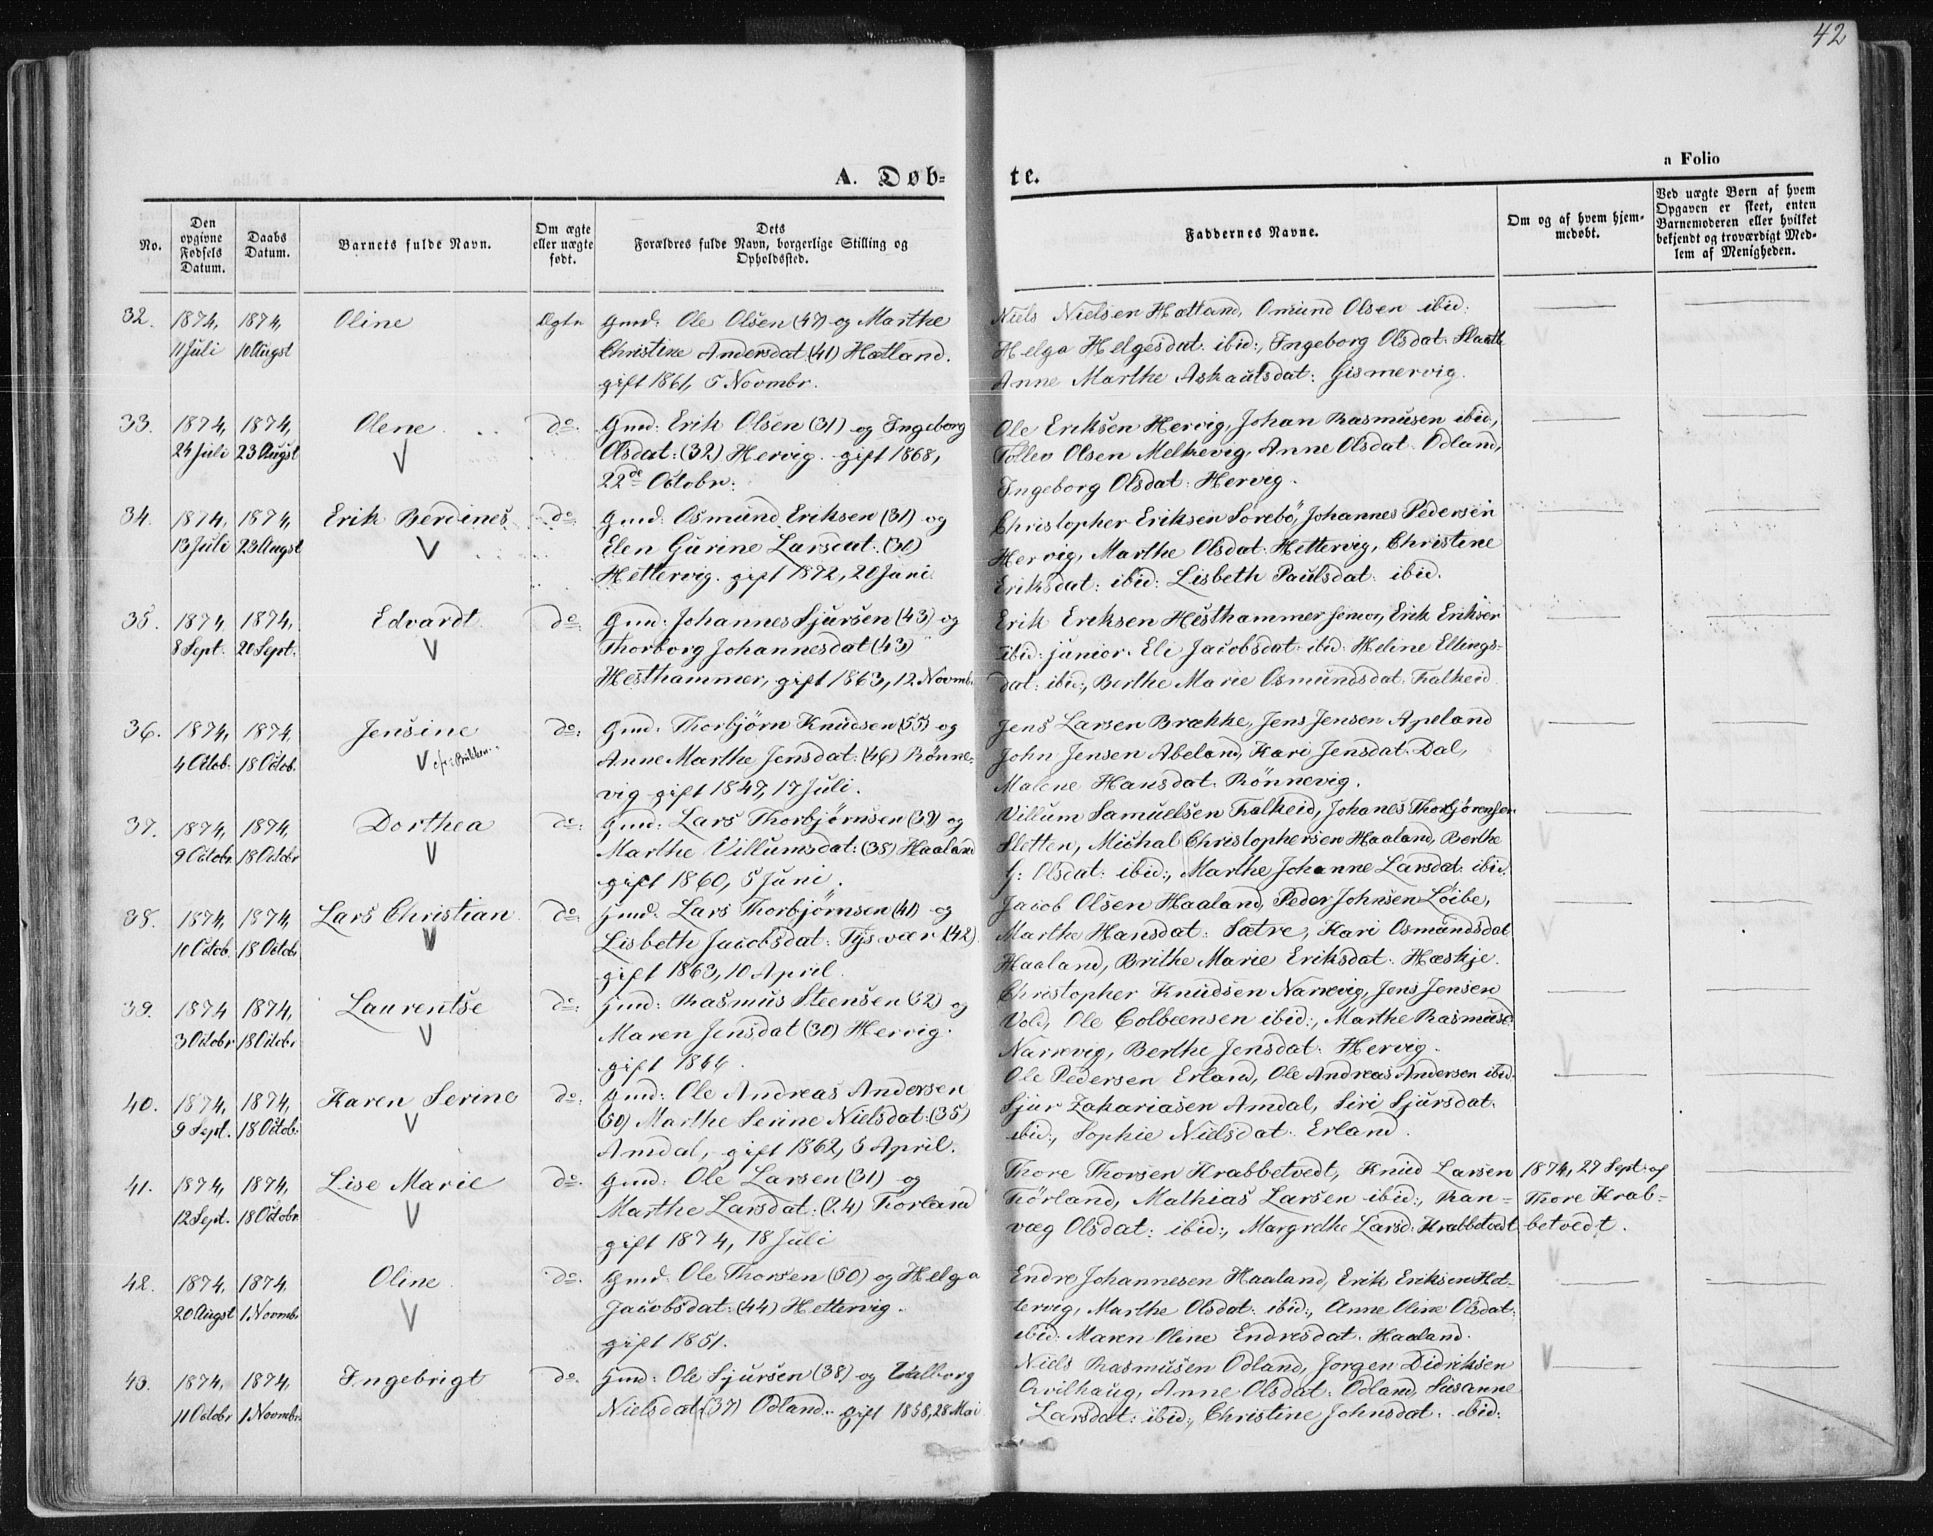 42
A. Døb-
te.
a Folio
No.
Den opgivne Fødsels Datum.
Daabs Datum.
Barnets fulde Navn.
Om ægte eller uægte født.
Dets Forældres fulde Navn, borgerlige Stilling og Opholdssted.
Faddernes Navne.
Om og af hvem hjemmedøbt.
Ved uægte Børn af hvem Opgaven er skeet, enten Barnemoderen eller hvilket bekjendt og troværdigt Medlem af Menigheden.
32. 1874, 1874, Oline Ægte Gmd: Ole Olsen (47) og Marthe
11 Juli 10 Augst Christine Andersdat (41) Hætland.
gift 1861, 5 Novmbr.
Niels Nielsen Hætland, Omund Olsen ibid:
Helga Helgesdat: ibid:, Ingeborg Olsdat:
Anne Marthe Askautsdat: Gismervig.
33. 1874, 1874, Olene do: Gmd: Erik Olsen (31) og Ingeborg
24 Juli 23 Augst Olsdat: (32) Hervig. gift 1868,
22de Octobr:
Ole Eriksen Hervig, Johan Rasmusen ibid,
Tollev Olsen Melkevig, Anne Olsdat. Odland,
Ingeborg Olsdat: Hervig.
34. 1874, 1874, Erik Berdines do: Gmd: Osmund Eriksen (31) og
13 Juli 23 Augst Elen Gurine Larsdat: (31)
Hettervig. gift 1872, 20 Juni.
Christopher Eriksen Sørebö, Johannes Pedersen
Hervig, Marthe Olsdat: Hettervig, Christine
Eriksdat: ibid: Lisbeth Paulsdat: ibid.
35. 1874, 1874, Edvardt do: Gmd: Johannes Sjursen (43) og
8 Sept. 20 Sept. Thorborg Johannesdat (43)
Hesthammer, gift 1863, 12 Novmb:
Erik Eriksen Hesthammer senior, Erik Eriksen
ibid: junior. Eli Jacobsdat: ibid: Heline Ellings-
dat: ibid:, Berthe Marie Osmundsdat: Falkeid.
36. 1874, 1874, Jensine do: Gmd: Thorbjörn Knudsen (55) og
4 Octob. 18 Octob. Anne Marthe Jensdat: (46) Rönne-
vig gift 1847, 17 Juli.
Jens Larsen Brække, Jens Jensen Apeland
John Jensen Abeland, Kari Jensdat. Dal,
Malene Hansdat. Rönnevig.
37. 1874, 1874, Dorthea do: Gmd: Lars Thorbjørnsen (39) og
9 Octobr 18 Octobr Marthe Villumsdat: (38) Haaland
gift 1860, 5 Juni.
Villum Samuelsen Falkeid, Johanes Thorbjørensen
Sletten, Michal Christophersen Haaland, Berthe
J: Olsdat: ibid:, Marthe Johanne Larsdat ibid.
38. 1874, 1874, Lars Christian do: Gmd: Lars Thorbjørnsen (41) og
11 Octob. 18 Octobr Lisbeth Jacobsdat: Tysvær (42)
gift 1863, 10 April.
Jacob Olsen Haaland, Peder Johnsen Löibe,
Marthe Hansdat: Sætre, Kari Osmundsdat
Haaland, Brithe Marie Eriksdat. Hæskje.
39. 1874 1874, Laurentse do: Gmd: Rasmus Steensen (32) og
3 Octobr 18 Octobr Maren Jensdat (30) Hervig.
gift 1866.
Christopher Knudsen Narrevig, Jens Jensen
Vold, Ole Colbeensen ibid:, Marthe Rasmusd.
Narrevig, Berthe Jensdat: Hervig.
40. 1874, 1874, Karen Serine do: Gmd: Ole Andreas Andersen
9 Sept. 18 Octob: (50) Marthe Serine Nielsdat: (35)
Amdal, gift 1862, 5 April.
Ole Pedersen Erland, Ole Andreas Andersen ibid.
Sjur Zakariasen Amdal, Siri Sjursdat.
ibid:, Sophie Nielsdat. Erland.
41. 1874, 1874, Lise Marie do: Gmd: Ole Larsen (31) og
12 Sept. 18 Octobr. Marthe Larsdat: (24) Thorland
gift 1874, 18 Juli
Thore Thorsen Krabbetvedt, Knud Larsen
Törland, Mathias Larsen ibid:, Ran-
væg Olsdat: ibid:, Margrethe Larsd: Krabbetvedt
1874, 27 Sept: af
Thore Krab-
betvedt.
42. 1874, 1874, Oline do. Gmd: Ole Thorsen (50) og Helga
20 Augst 1 Novmb: Jacobsdat: (44) Hettervig.
gift 1851.
Endre Johannesen Haaland, Erik Eriksen Het-
tervig, Marthe Olsdat: ibid:, Anne Oline Olsdat.
ibid: Maren Oline Endresdat. Haaland.
43. 1874, 1874, Ingebrigt do. Gmd: Ole Sjursen (38) og Valborg
11 Octobr 1 Novmbr Nielsdat: (37) Odland.. gift 1858, 28 Mai
Niels Rasmusen Odland, Jorgen Didriksen
Qvilhaug, Anne Olsdat: Odland, Susanne
Larsdat: ibid:, Christine Johnsdat. ibid: